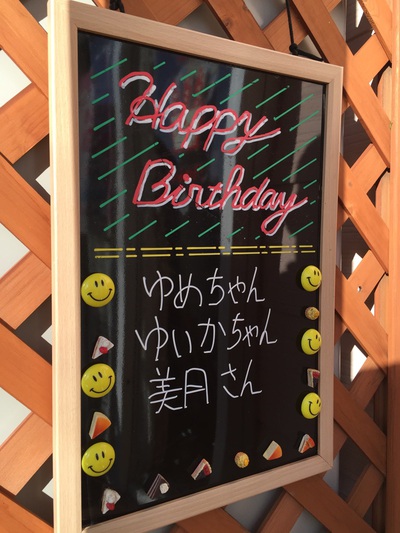 Happy
Birthday
ゆめちゃん
ゆいかちゃん
美月さん